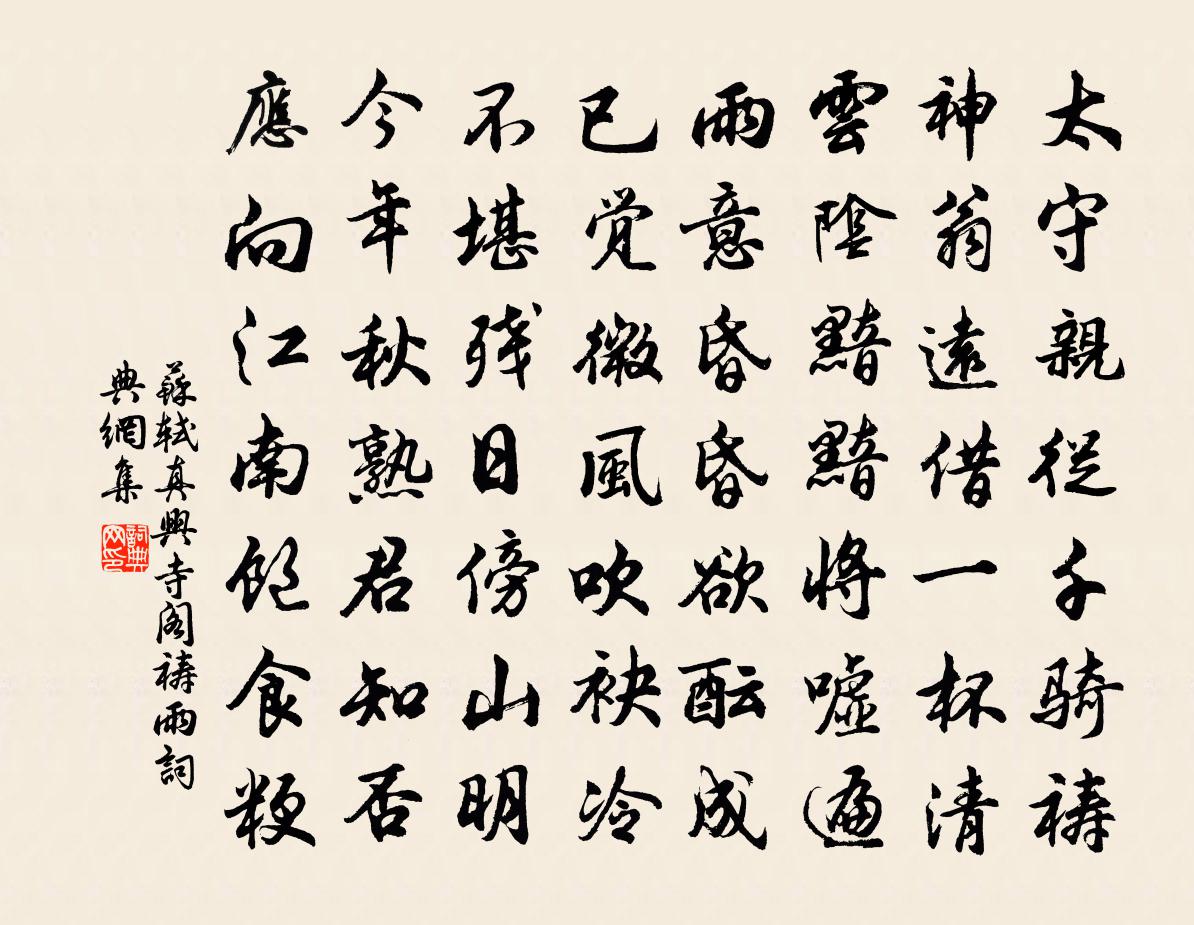 太守親從千騎禱
神翁遠借一杯清
雲陰黯黯將噓遍
雨意昏昏欲酝成
已觉微風吹袂冷
不堪残日傍山明
今年秋熟君知否
應向江南飽食粳
蘇軾真興寺阁禱雨詞
典網集
詞典网印